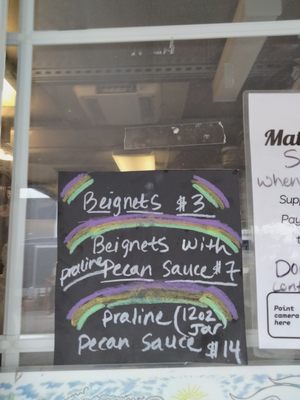 Beignets $3
Beignets with
praline Pecan Sauce $7
Praline (12oz Jar
Pecan Sauce $14
Mat
S
when
Supp
Pay
Do
Point
camera
here